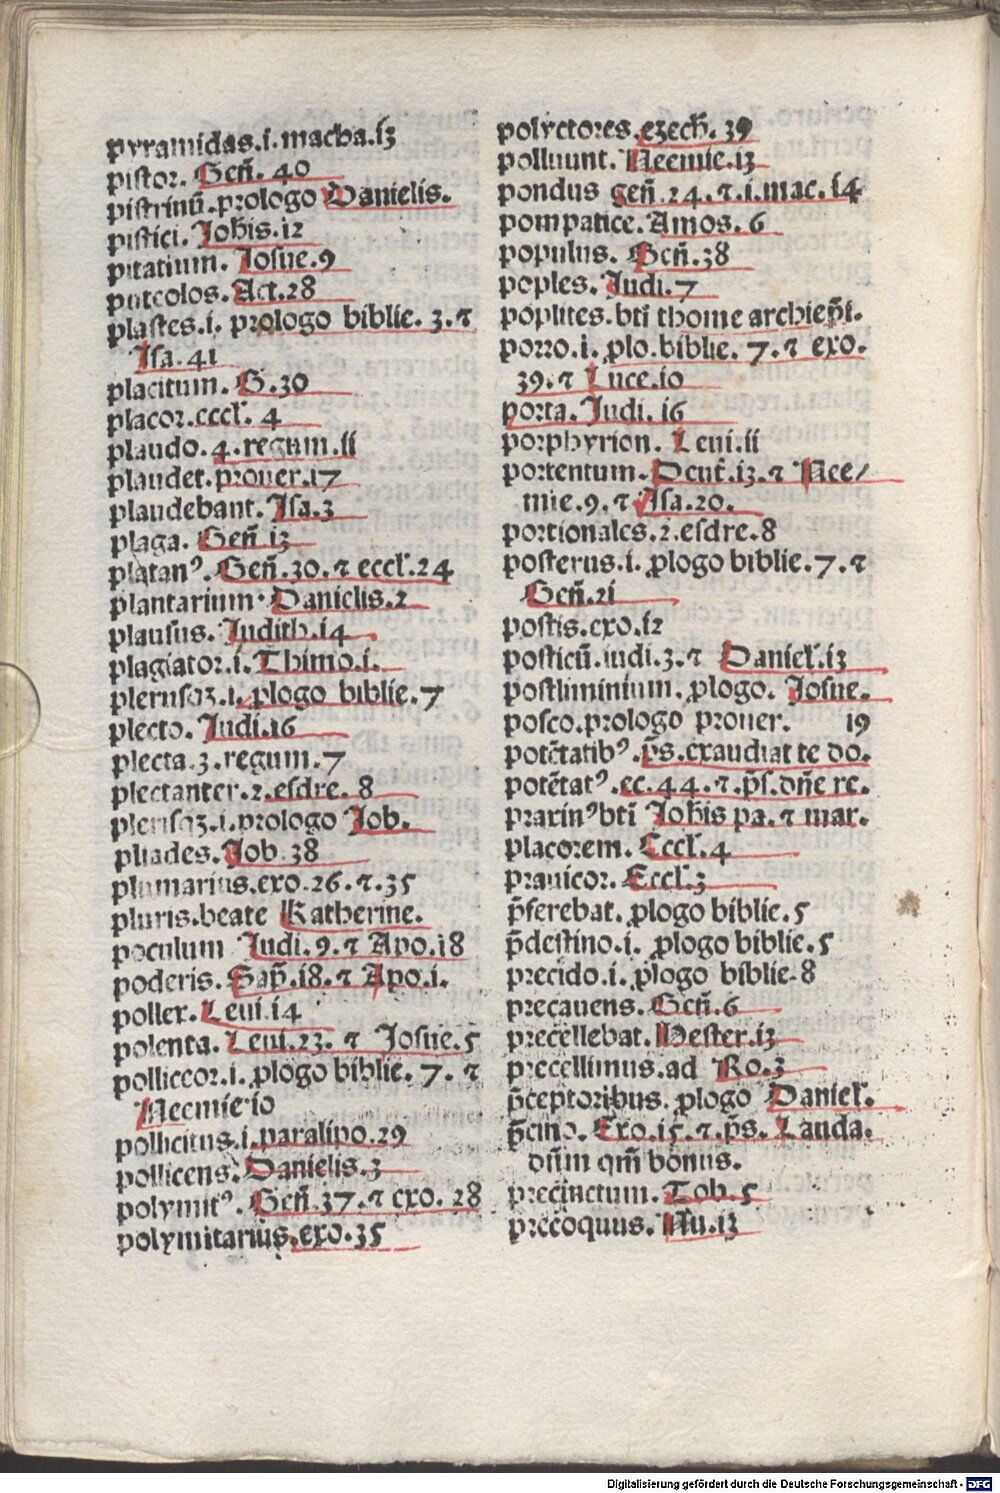 pyramidas.i.macha.i3
pistor. Geñ. 40
pistrinū.prologo Danielis.
pistici. Johis.12
pitatium. Josue.9
puteolos. Act.28
plastes.i. prologo biblie. 3.⁊
Isa. 41
placitum. G.30
placor.eccl'. 4
plaudo.4.regum.ii
plaudet.prouer.17
plaudebant. Isa.3
plaga. Geñ 13
platanꝰ. Geñ.30.⁊ eccl'.24
plantarium. Danielis.2
plausus. Judith.14
plagiator.i.Thimo.i.
plerusqꝫ.i.ꝓlogo biblie.7
plecto. Judi.16
plecta.3.regum.7
plectanter.2.esdre. 8
plerisqꝫ.i.prologo Job.
pliades. Job.38
plumarius.exo.26.⁊.35
pluris.beate Katherine.
poculum Judi.9.⁊ Apo.18
poderis. Sap̄.18.⁊ Apo.i.
pollex. Leui.14
polenta. Leui.23. ⁊ Josue.5
polliceor.i.ꝓlogo biblie. 7. ⁊
Neemie 10
pollicitus.i.paralipo.29
pollicens. Danielis.3
polymitꝰ. Geñ.37.⁊ exo. 28
polymitarius.exo.35
polyctores.ezech̄. 39
polluunt. Neemie.13
pondus geñ.24.⁊.i.mac.14
pompatice.Amos.6
populus. Geñ.38
poples. Judi.7
poplites.btī thome archiep̄i.
porro.i.ꝓlo.biblie. 7.⁊ exo.
39.⁊ Luce.10
porta. Judi. 16
porphyrion. Leui.ii
portentum. Deut̄.13.⁊ Nee/
mie.9.⁊ Isa.20.
portionales.2.esdre.8
posterus.i. ꝓlogo biblie.7.⁊
Geñ.21
postis.exo.12
posticū.iudi.3.⁊ Daniel'.13
postliminium.ꝓlogo. Josue.
posco.prologo prouer. 19
potētatibꝰ.p̄s.exaudiat te do.
potētatꝰ.ec.44.⁊.p̄s.dn̄e re.
praxinꝰ btī Joh̄is pa.⁊ mar.
placorem. Eccl'.4
prauicor. Eccl'.3
p̄ferebat.ꝓlogo biblie.5
p̄destino.i. ꝓlogo biblie.5
precido.i.ꝓlogo biblie.8
precauens. Geñ.6
precellebat. Hester.13
precellimus.ad Ro.3
p̄ceptoribus. ꝓlogo Daniel'.
p̄cino. Exo.15.⁊.p̄s. Lauda.
dūm qm̄ bonus.
precinctum. Tob.5
precoquus. Nu.13
Digitalisierung gefördert durch die Deutsche Forschungsgemeinschaft - DFG